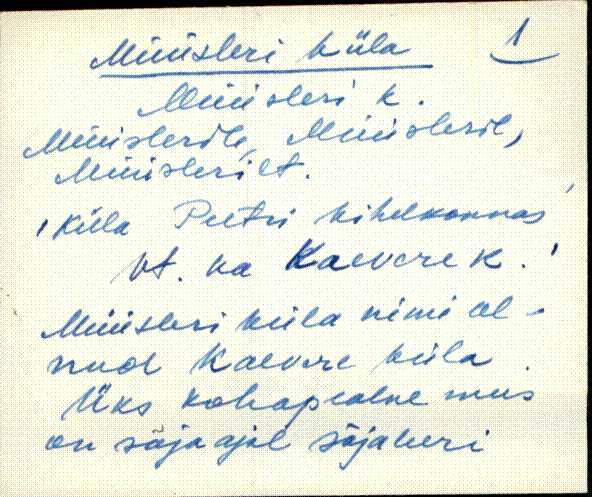 Müüsleri küla 1
Müüsleri k.
Müüslerile, Müüsleril,
Müüslerilt.
'Küla Peetri kihelkonnas'
Vt. ka Kaevere k.!
Müüsleri küla nimi ol-
nud Kaevere küla.
Üks kohapealne mees
on sõja ajal sõjaleri